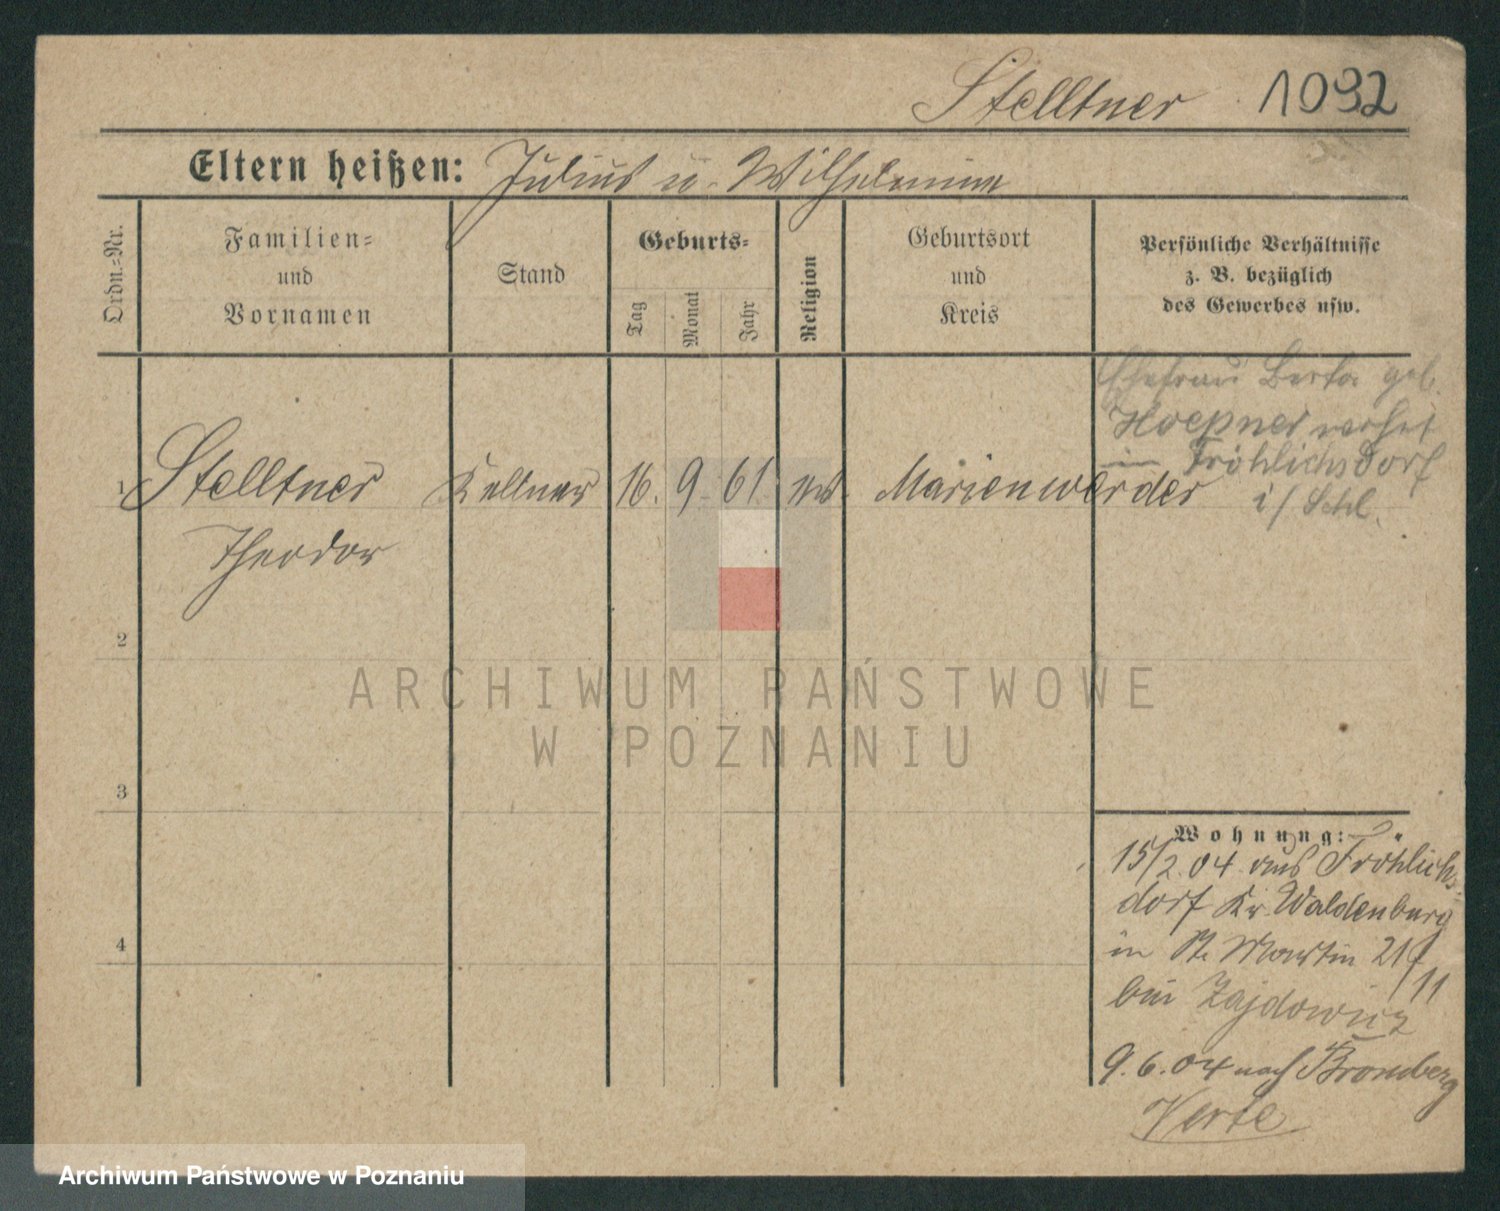 Stelltner 1092
Eltern heißen: Julius u. Wilhelmine
Ordn.-Nr.
Familien-
und
Vornamen
Stand
Geburts-
Tag
Monat
Jahr
Religion
Geburtsort
und
Kreis
Persönliche Verhältnisse
z. B. bezüglich
des Gewerbes usw.
Ehefrau Berta geb.
Hoepner wohnt
in Fröhlichsdorf
i/ Schl.
1 Stelltner Kellner 16. 9. 61 ev. Marienwerder
Theodor
2
3
4
Wohnung:
15/2.04. aus Fröhlichs
dorf Kr. Waldenburg
in St. Martin 21
11
bei Zajdowicz
9.6.04 nach Bromberg
Verte
ARCHIWUM PAŃSTWOWE
W POZNANIU
Archiwum Państwowe w Poznaniu